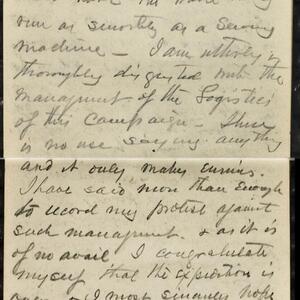 run as smoothly as a Sewing
machine - I am utterly &
thoroughly disgusted with the
managment of the Logistics
of this Campaign - There
is no use saying anything
and it only makes Enemies.
I have said more than Enough
to record my protest against
such managment. & as it is
of no avail I congratulate
myself that the expedition is
I most sincerely hope